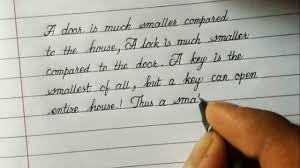 A door is much smaller compared
to the house, A lock is much smaller
compared to the door. A key is the
smallest of all, but a key can open
entire house! Thus a sma